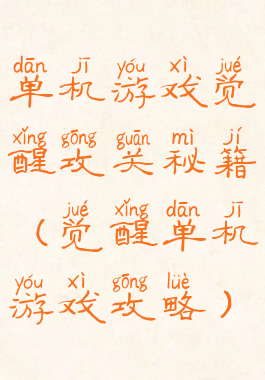 dān jī yóu xì jué
单机游戏觉
xǐng gōng guān mì jí
醒攻关秘籍
jué xǐng dān jī
（觉醒单机
yóu xì gōng lüè
游戏攻略）